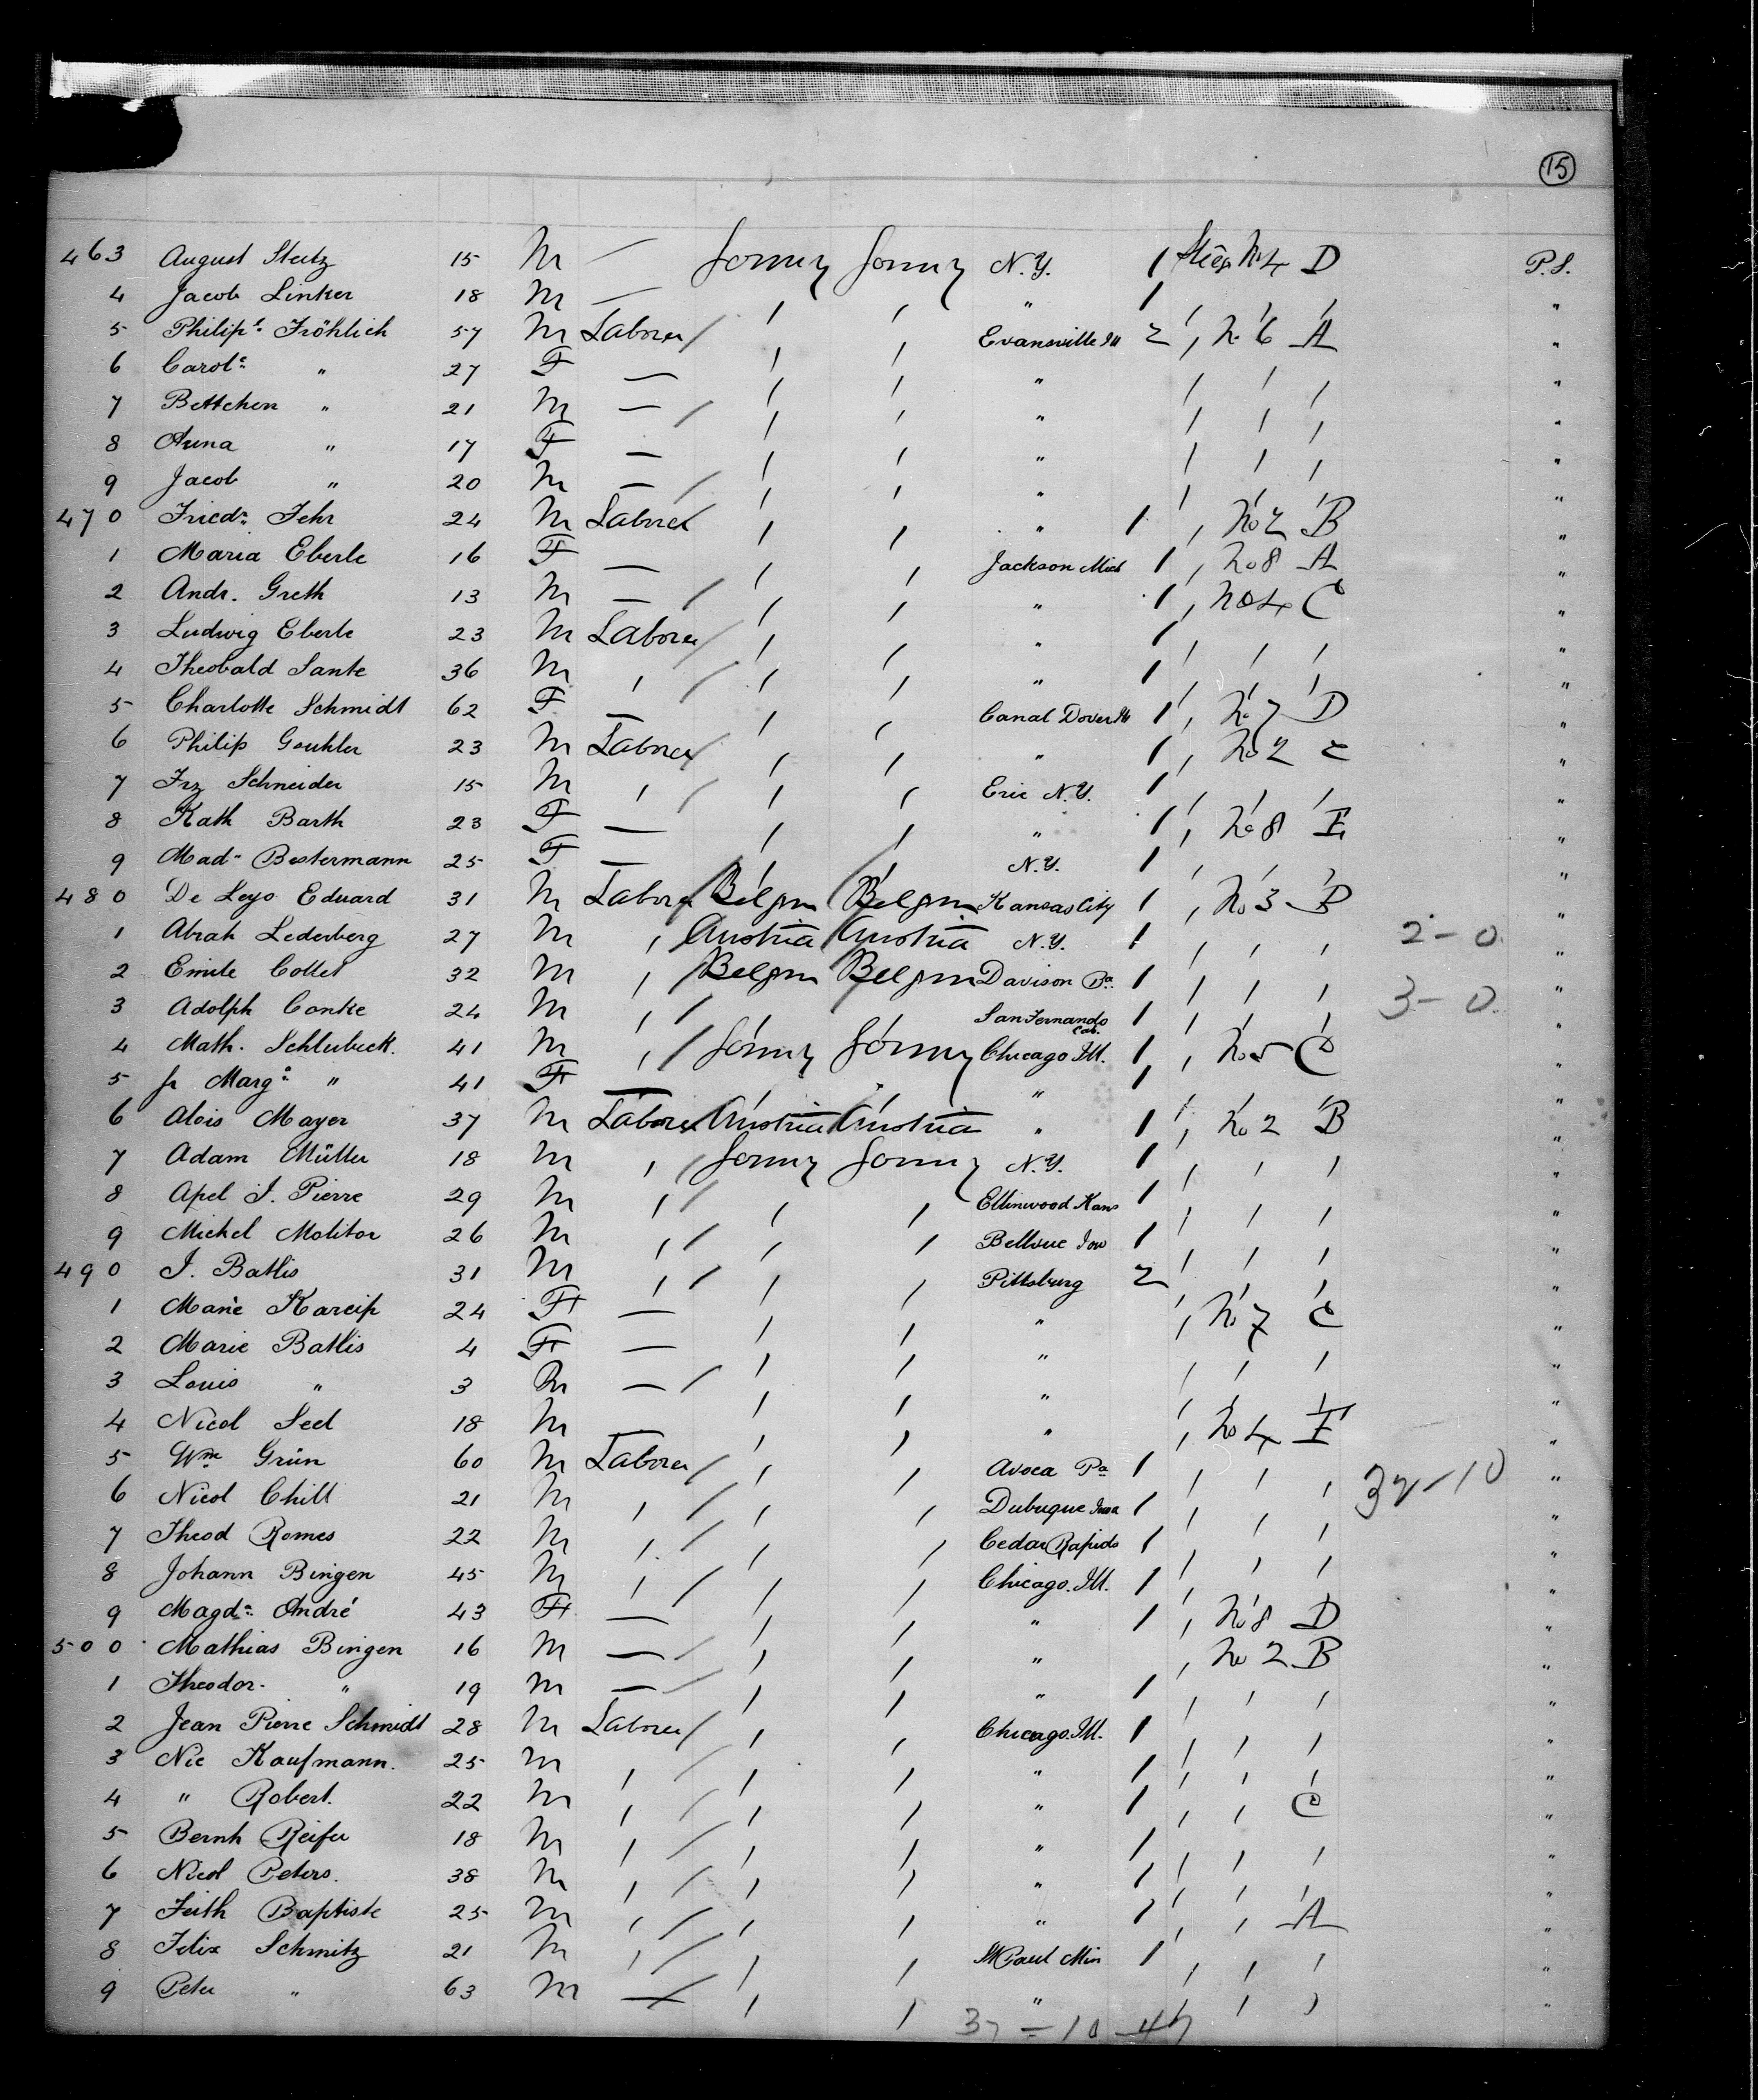 15
463 August Steitz 15 M — Germy Germy N.Y. 1 No 4 D P.S.
4 Jacob Linker 18 M — " 1 "
5 Philip Fröhlich 57 M Laborer / Evansville 2 No 6 A "
6 Carol " 27 F — " "
7 Bettchen " 21 M — / " "
8 Anna " 17 F — " "
9 Jacob " 20 M — / " "
470 Friedr. Fehr 24 M Laborer " 1 No 2 B "
1 Maria Eberle 16 F — Jackson Mich 1 No 8 A "
2 Andr. Greth 13 M — / " 1 No 4 C "
3 Ludwig Eberle 23 M Laborer / " 1 "
4 Theobald Sante 36 M / " 1 "
5 Charlotte Schmidt 62 F — Canal Dover 1 No 7 D "
6 Philip 23 M Laborer / " 1 No 2 C "
7 Frz Schneider 15 M / Erie N.Y. 1 "
8 Kath Barth 23 F — " 1 No 8 E "
9 Mad Bestermann 25 F — N.Y. 1 "
480 De Leyo Eduard 31 M Laborer Belgm Belgm Kansas City 1 No 3 B "
1 Abrah Lederberg 27 M Austria Austria N.Y. 1 2-0 "
2 Emile Collet 32 M Belgm Belgm Davison Pa. 1 3-0 "
3 Adolph Conke 24 M / San Fernando Cal. 1 "
4 Math. Schlubeck. 41 M / Germy Germy Chicago Ill. 1 No 5 C "
5 Marg " 41 F — " 1 "
6 Alois Mayer 37 M Laborer Austria Austria " 1 No 2 B "
7 Adam Müller 18 M / Germy Germy N.Y. 1 "
8 Apel J. Pierre 29 M / Ellinwood Kans 1 "
9 Michel Molitor 26 M / Bellvue Iow 1 "
490 J. Batlis 31 M / Pittsburg 2 "
1 Marie Kareip 24 F — " No 7 C "
2 Marie Batlis 4 F — " "
3 Louis " 3 M — / " "
4 Nicol Seel 18 M — " No 4 E "
5 Wm Grün 60 M Laborer / Avoca Pa 1 37-10 "
6 Nicol Chill 21 M / Dubuque Iowa 1 "
7 Theod Romes 22 M / Cedar Rapids 1 "
8 Johann Bingen 45 M / Chicago. Ill. 1 "
9 Magda André 43 F — " 1 No 8 D "
500 Mathias Bingen 16 M — / " No 2 B "
1 Theodor. " 19 M — / " 1 "
2 Jean Pierre Schmidt 28 M Laborer / Chicago. Ill. 1 "
3 Nic Kaufmann. 25 M / " 1 "
4 " Robert. 22 M / " 1 C "
5 Bernh Reifer 18 M / " 1 "
6 Nicol Peters. 38 M / " 1 "
7 Feith Baptiste 25 M / " 1 A "
8 Felix Schmitz 21 M / St Paul Min 1 "
9 Peter " 63 M — " "
37 = 10 - 47